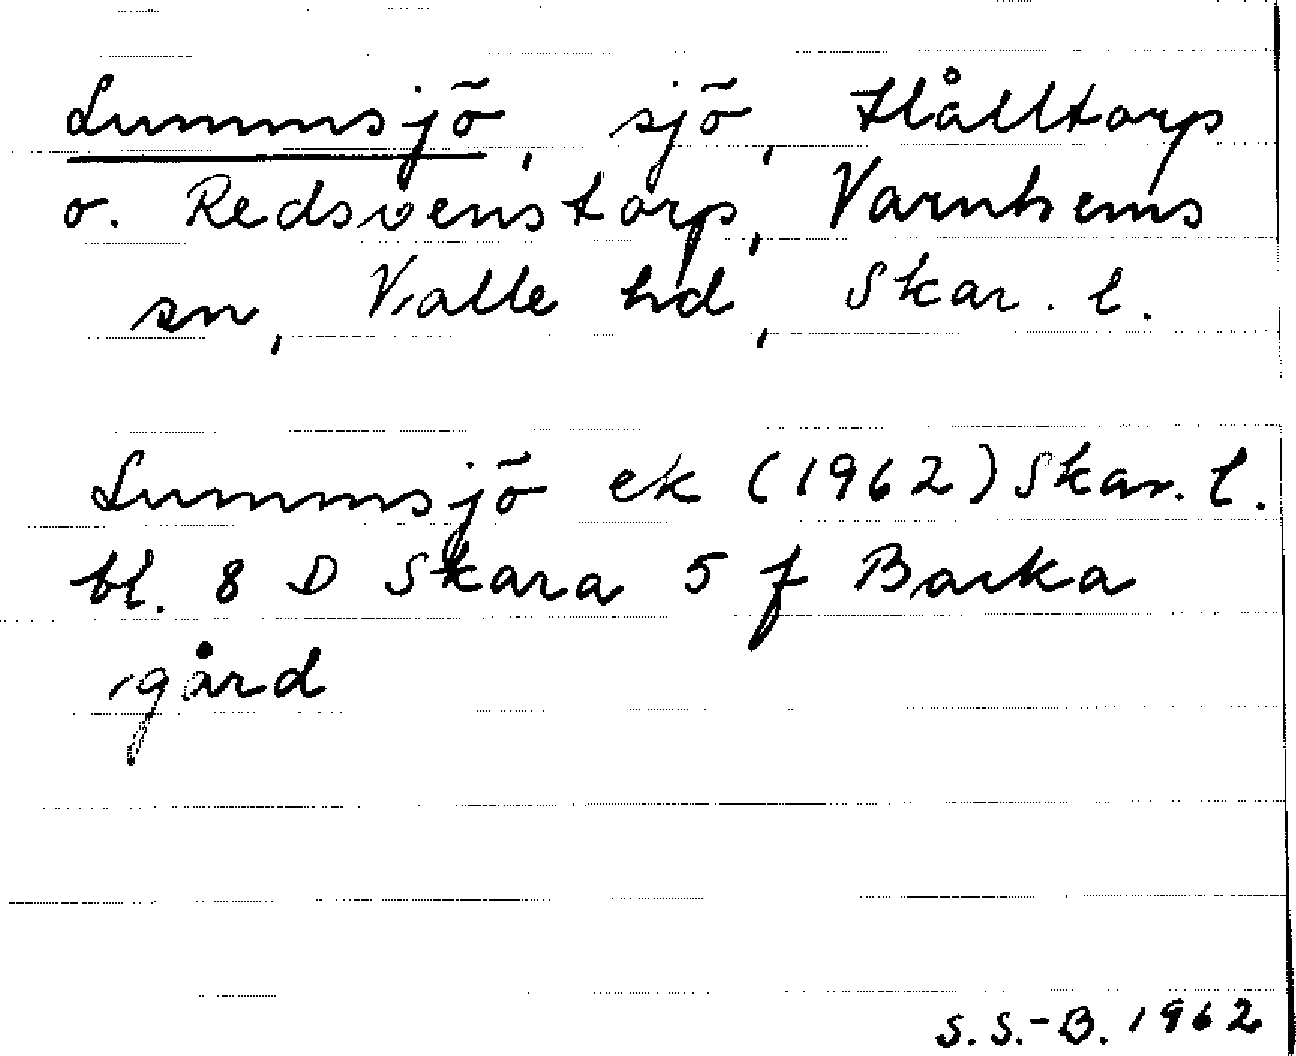 Lummsjö, sjö, Hålltorp
o. Redsvenstorp, Varnhems
sn, Valle hd, Skar. l.
Lummsjö ek (1962) Skar. l.
bl. 8 D Skara 5 f Backa
gård
S. S.-B. 1962